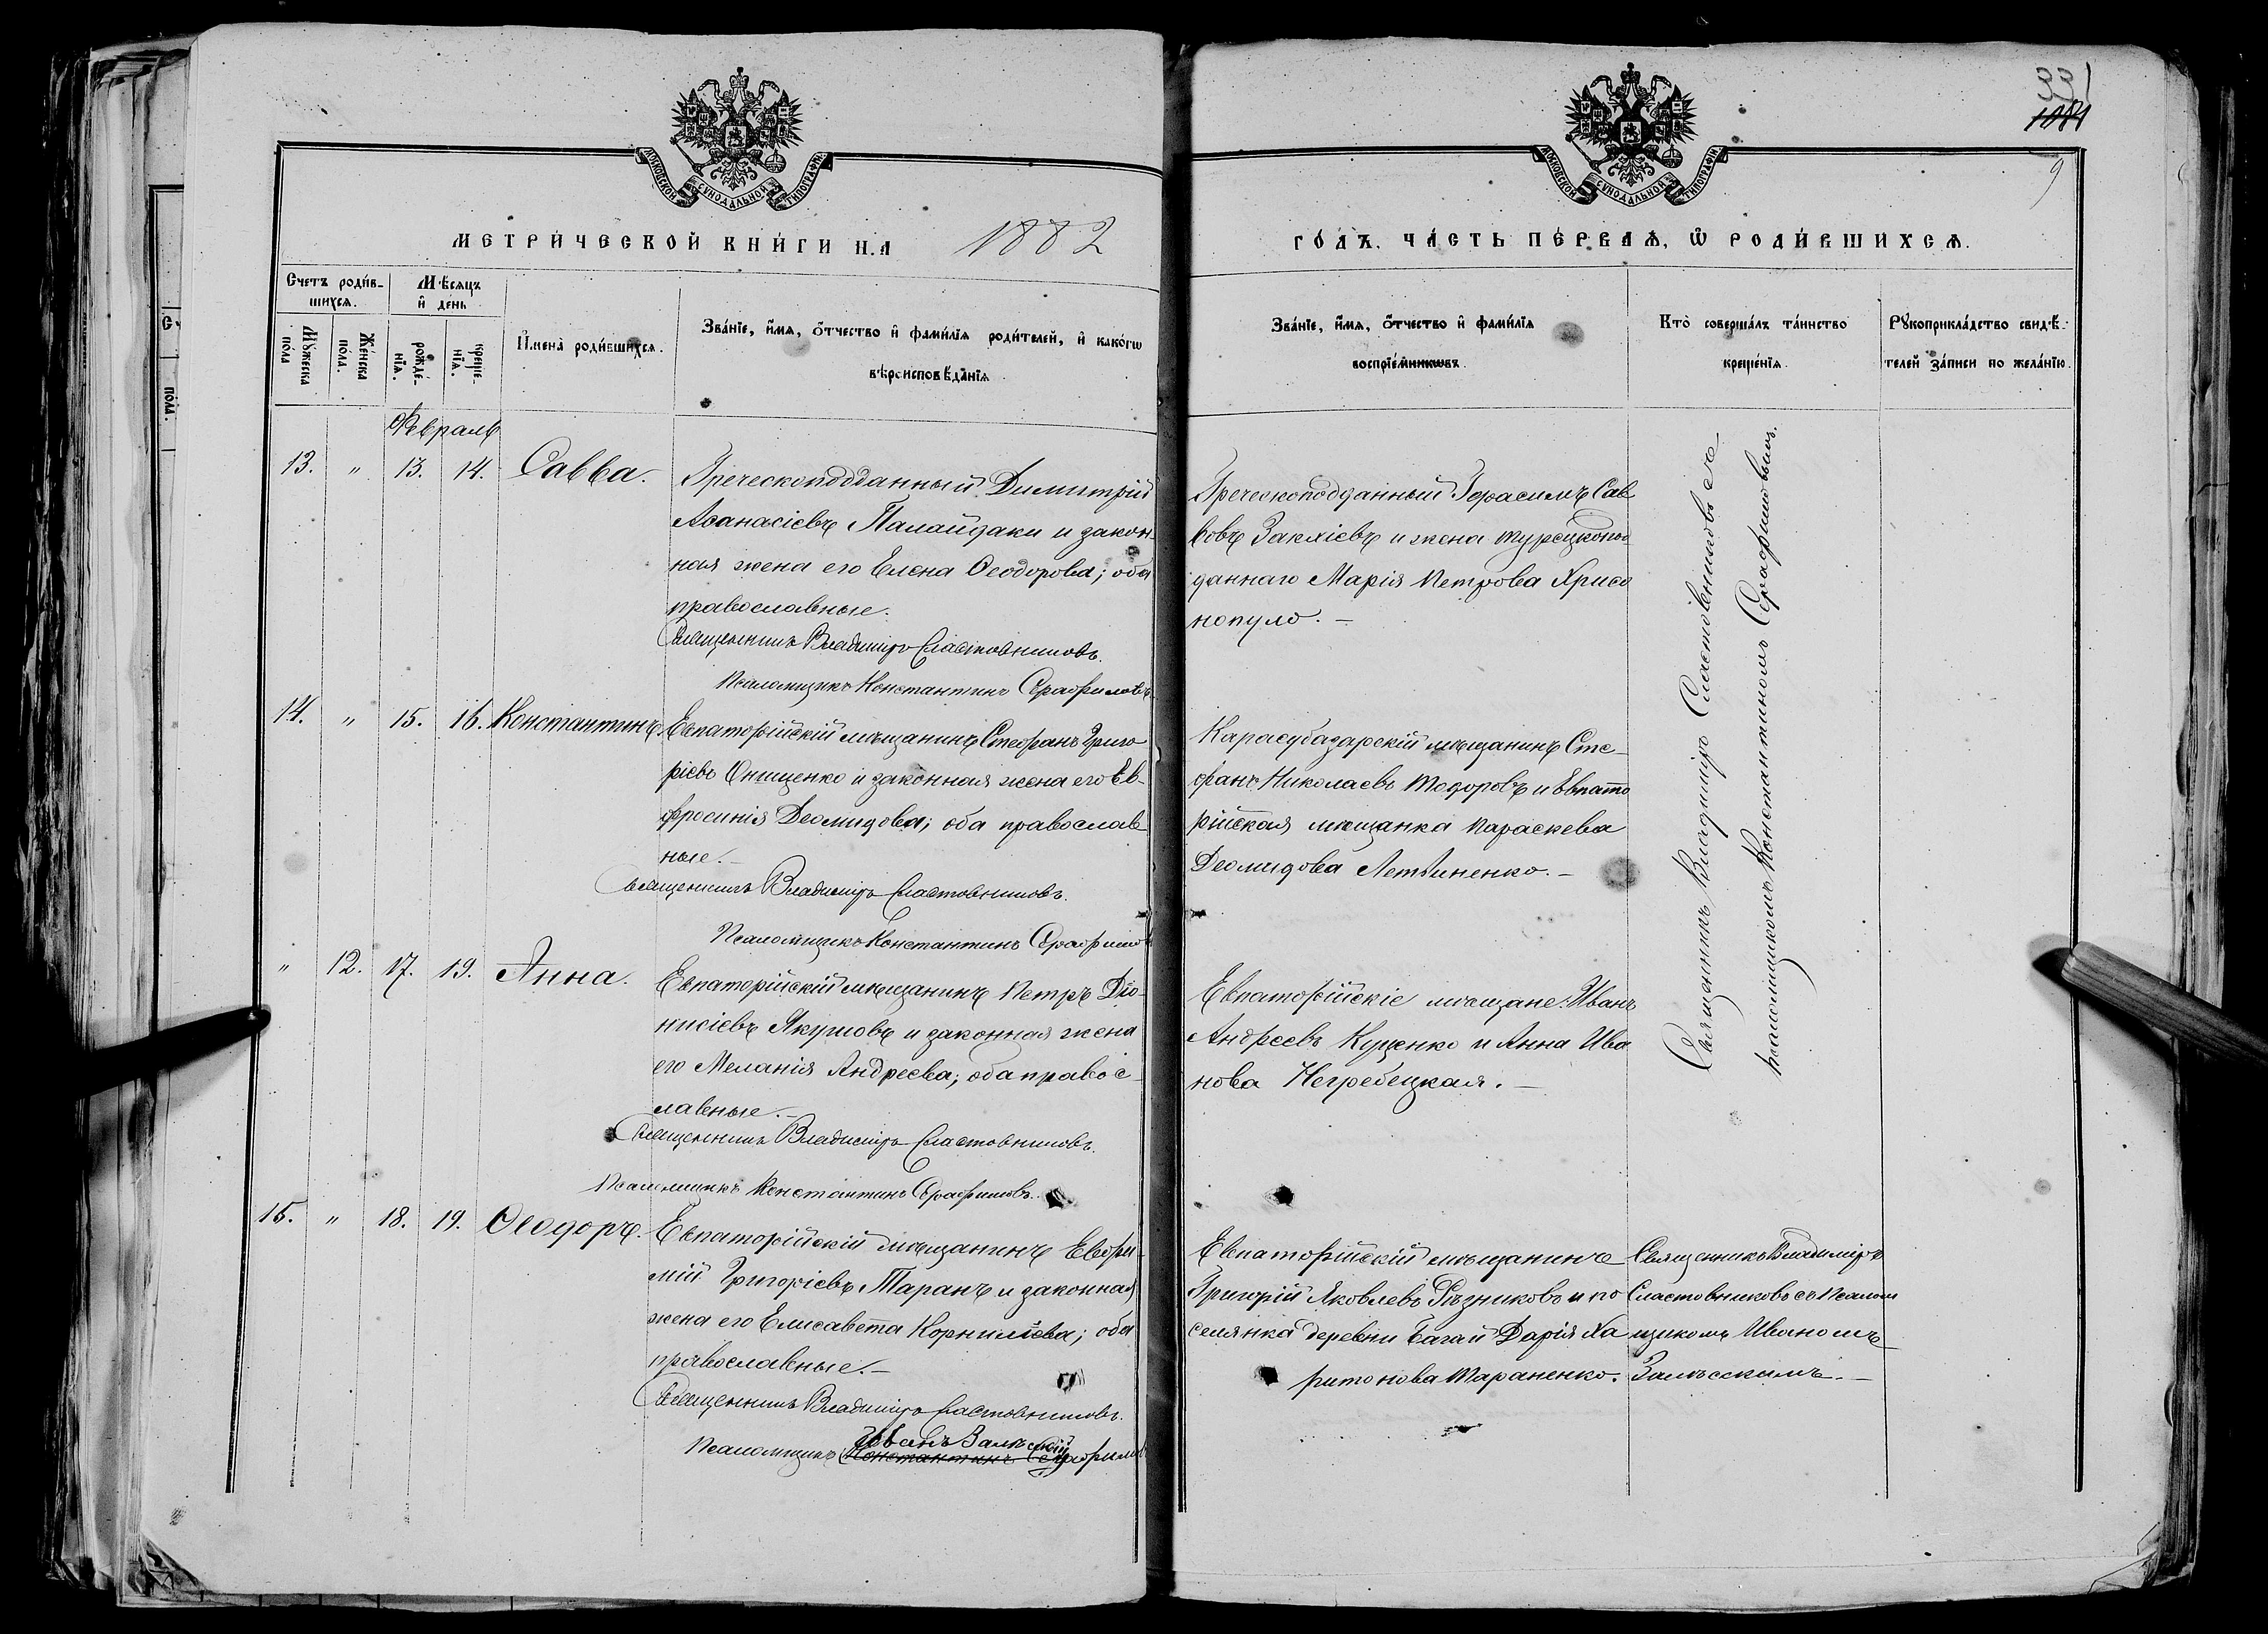 331
1084
9
МОСКОВСКОЙ СУНОДАЛЬНОЙ ТИПОГРАФІИ
МОСКОВСКОЙ СУНОДАЛЬНОЙ ТИПОГРАФІИ
МЕТРИ́ЧЕСКОЙ КНИ́ГИ НА 1882
ГО́ДЪ, ЧА́СТЬ ПЕ́РВАѦ, Ѡ҆ РОДИ́ВШИХСѦ.
Счетъ роди́в-
шихсѧ.
Мѣ́сѧцъ
и҆ де́нь
Мꙋ́жеска
по́ла
Же́нска
по́ла.
рожде́-
нїѧ.
креще́-
нїѧ.
И҆мена̀ роди́вшихсѧ.
Зва́нїе, и҆́мѧ, ѻ҆́тчество и҆ фами́лїѧ роди́телей, и҆ како́гѡ
вѣроисповѣ́данїѧ
Зва́нїе, и҆́мѧ, ѻ҆́тчество и҆ фами́лїѧ
воспрїе́мникѡвъ.
Кто̀ соверша́лъ та́инство
креще́нїѧ.
Рꙋкоприкла́дство свидѣ́-
телей за́писи по жела́нїю.
Февраль
13. " 13. 14. Савва.
Греческоподданный Димитрій
Аѳанасіевъ Палайдаки и закон-
ная жена его Елена Ѳеодорова; оба
православные.
Священникъ Владиміръ Сластовниковъ.
Псаломщикъ Константинъ Серафимовъ.
Греческоподданный Герасимъ Сав
вовъ Закхіевъ и жена турецкопод
даннаго Марія Петрова Хрисо
нопуло. —
14. " 15. 16. Константинъ.
Евпаторійскій мѣщанинъ Стефанъ Григо
ріевъ Онищенко и законная жена его Ев-
фросинія Деомидова; оба православ-
ные. —
Священникъ Владиміръ Сластовниковъ.
Псаломщикъ Константинъ Серафимовъ
Карасубазарскій мѣщанинъ Сте-
фанъ Николаевъ Тодоровъ и Евпато
рійская мѣщанка Параскева
Деомидова Летвиненко. —
" 12. 17. 19. Анна.
Евпаторійскій мѣщанинъ Петръ Діо-
нисіевъ Якушовъ и законная жена
его Меланія Андреева; оба правос-
лавные. —
Священникъ Владиміръ Сластовниковъ.
Псаломщикъ Константинъ Серафимовъ.
Евпаторійскіе мѣщане: Иванъ
Андреевъ Куценко и Анна Ива
нова Негребецкая. —
Священникъ Владиміръ Сластовниковъ съ
псаломщикомъ Константиномъ Серафимовымъ.
15. " 18. 19. Ѳеодоръ.
Евпаторійскій мѣщанинъ Евфи-
мій Григоріевъ Таранъ и законная
жена его Елисавета Корниліева; оба
православные. —
Священникъ Владиміръ Сластовниковъ.
Иванъ Залѣсскій
Псаломщикъ Константинъ Серафимовъ
Евпаторійскій мѣщанинъ
Григорій Яковлевъ Рѣзниковъ и по
селянка деревни Багай Дарія Ха
ритонова Тараненко.
Священникъ Владиміръ
Сластовниковъ съ Псалом
щикомъ Иваномъ
Залѣсскимъ. —